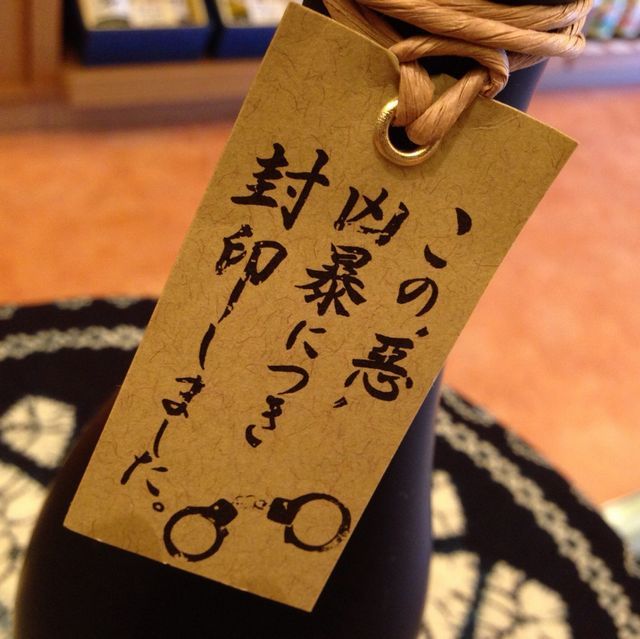 この〝惡〟
凶暴につき
封印しました。